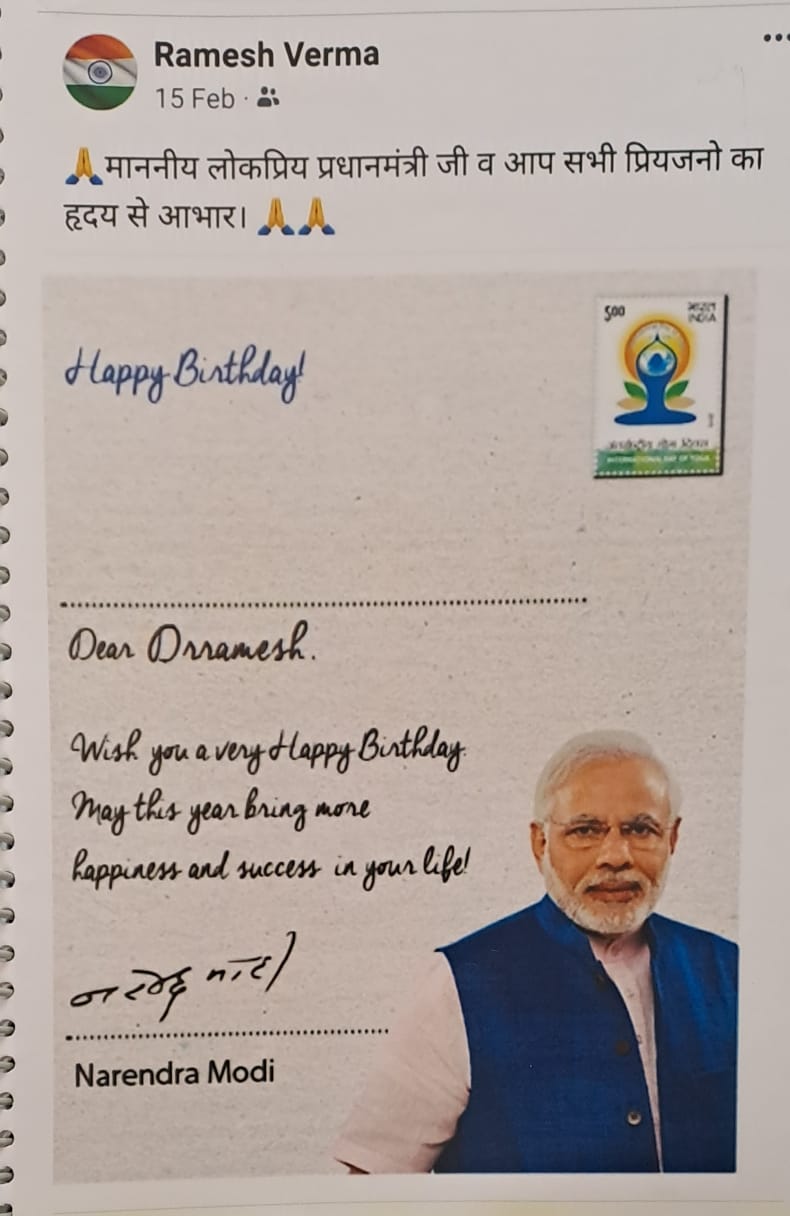 Ramesh Verma
15 Feb ·
🙏माननीय लोकप्रिय प्रधानमंत्री जी व आप सभी प्रियजनो का
हृदय से आभार। 🙏🙏
Happy Birthday!
500
भारत
INDIA
INTERNATIONAL DAY OF YOGA
Dear Drramesh.
Wish you a very Happy Birthday.
May this year bring more
happiness and success in your life!
नरेन्द्र मोदी
Narendra Modi